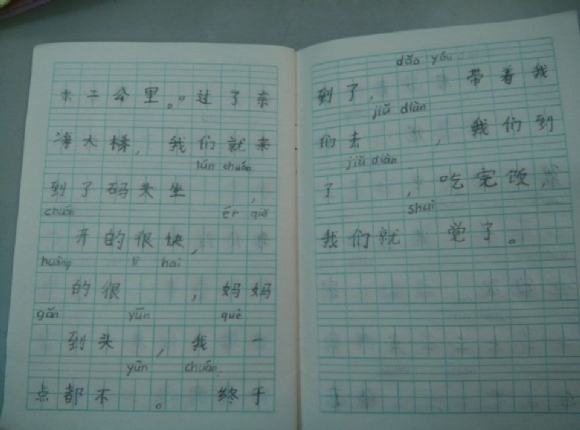 二公里。过了东
海大桥，我们就来
lún chuán
到了码头坐　　，
chuán ér qiě
开的很快，
huàng lì hai
的很　　，妈妈
gǎn yūn què
到头　，我　一
yūn chuán
点都不　　。终于
dǎo yóu
到了，　　带着我
jiǔ diàn
们去　　，我们到
jiǔ diàn
了　　，吃完饭，
shuì
我们就　觉了。